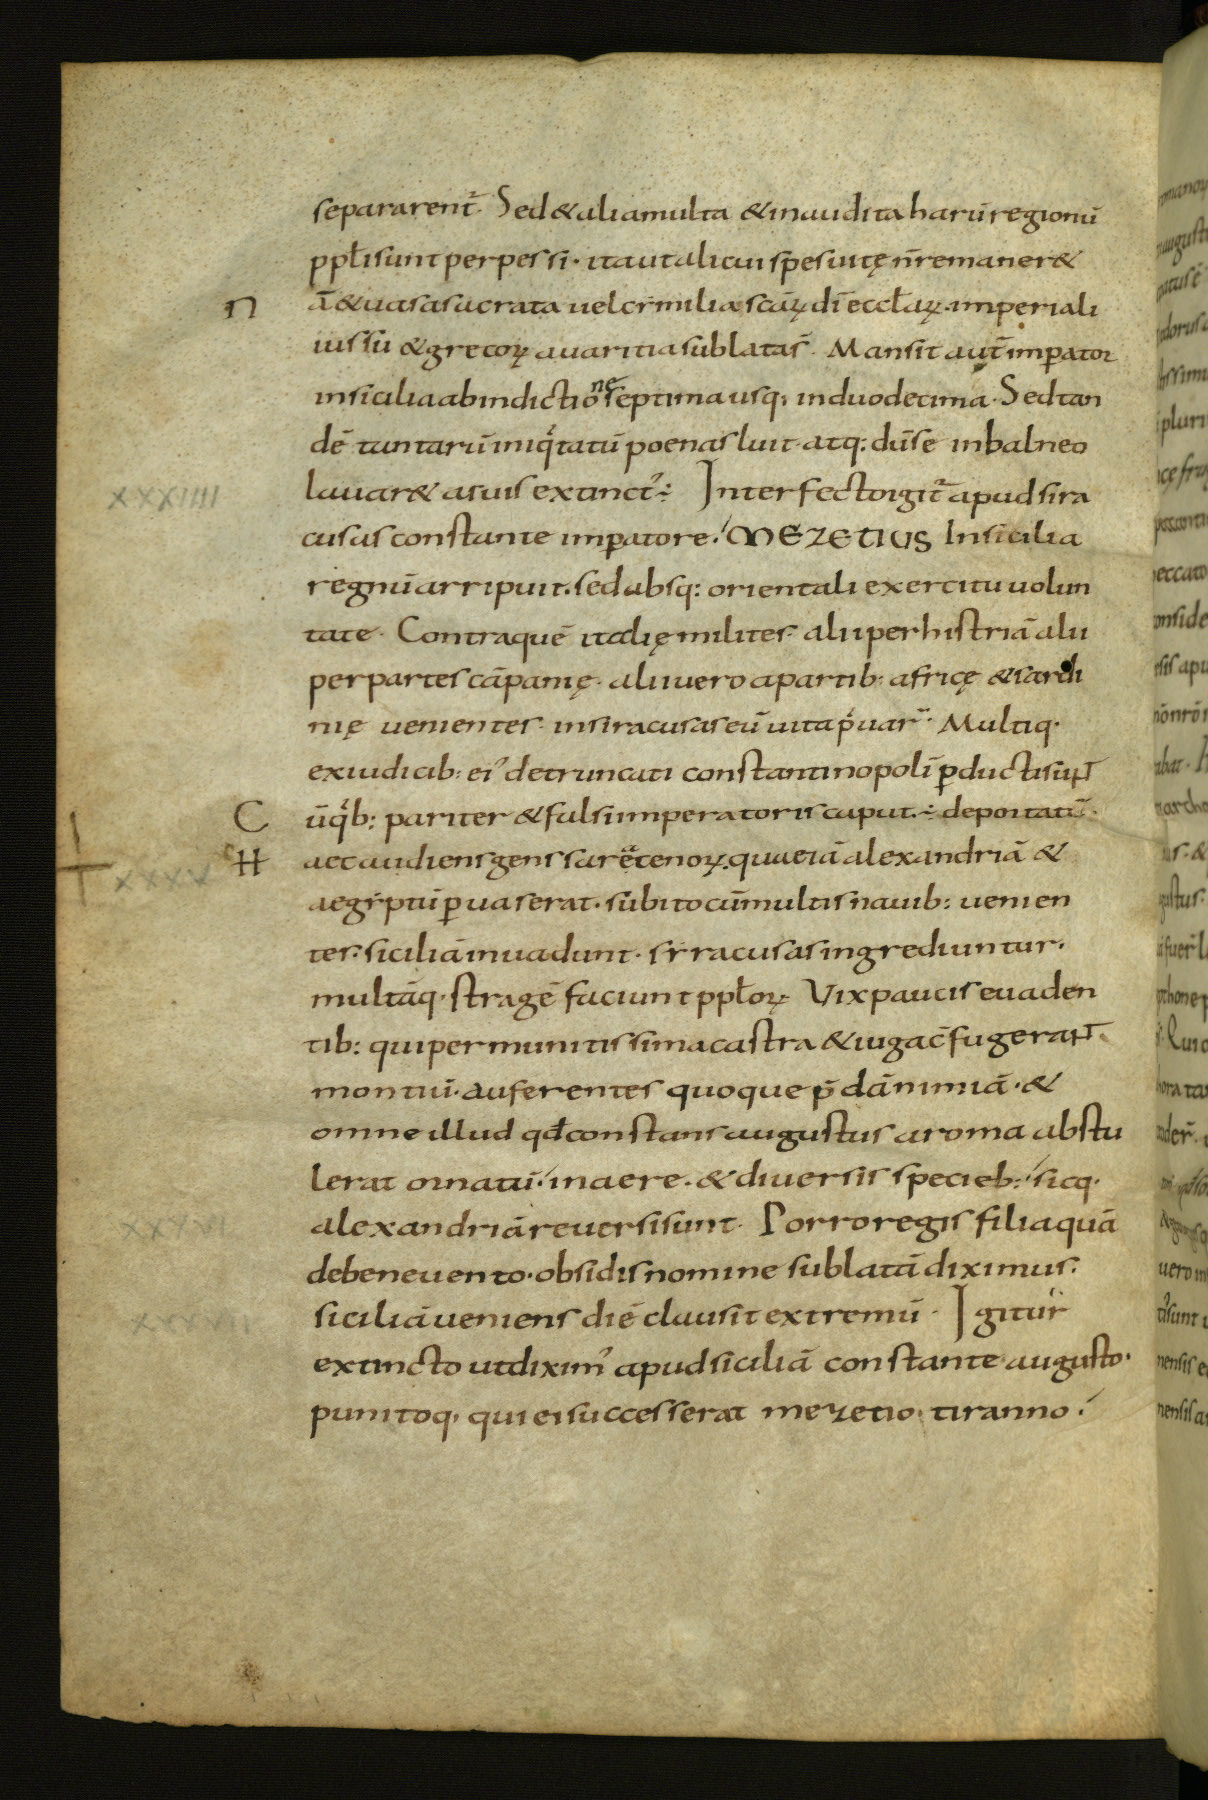 separarent᷑. Sed & alia multa & inaudita harū regionū
ppl̄i sunt perpessi · ita ut alicui spes uitę n̄ remaner&
N ā & uasa sacrata uel cimilia scārꝝ dī eccl̄arꝝ · imperiali
iussu & grecoꝝ auaritia sublata s̄. Mansit aut̄ imꝑator
in sicilia ab indictione septima usq; in duodecima · Sed tan
dē tantarū iniq̇tatū poenas luit · atq: dū se in balneo
XXXIIII lauar& a suis extinct᾽ ÷ Interfecto igit᷑ apud sira
cusas constante imꝑatore · MEZETIUS In sicilia
regnū arripuit · sed absq: orientali exercitu uolun
tate · Contra quē italię milites · alii per histriā alii
per partes cāpanię · alii uero a partib: africę & sardi
nię uenientes · in siracusas eū uita p̓uar̄ · Multiq·
ex iudicib: ei᾽ detruncati constantinopolī ꝑducti suɴᴛ
C ūq̇b: pariter & falsi imperatoris caput ÷ deportatū ·
XXXV H aec audiens gens sarracenoꝝ · quae iā alexandriā &
aegyptū ꝑuaserat · subito cū multis nauib: uenien
tes · siciliā inuadunt · syracusas ingrediuntur ·
multāq· stragē faciunt ppl̄oꝝ Vix paucis euaden
tib: qui per munitissima castra & iuga c̄fugeraɴᴛ
montiū · auferentes quoque p̄dā nimiā · &
omne illud qđ constans augustus a roma abstu
lerat ornatū · in aere · & diuersis specieb: sicq·
XXXVI alexandriā reuersi sunt · Porro regis filia quā
de beneuento · obsidis nomine sublatā diximus ·
XXXVII siciliā ueniens diē clausit extremū · Igitur
extincto ut dixim᾽ apud siciliā constante augusto ·
punitoq· qui ei successerat mezetio · tiranno ·